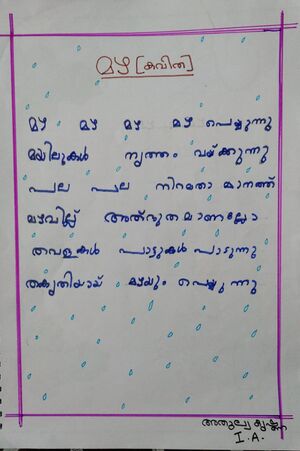 മഴ [കവിത]
മഴ മഴ മഴ മഴ പെയ്യുന്നു
മയിലുകൾ നൃത്തം വയ്ക്കുന്നു
പല പല നിറമതാ മാനത്ത്
മഴവില്ല് അത്ഭുതമാണല്ലോ
തവളകൾ പാട്ടുകൾ പാടുന്നു
തകൃതിയായ് മഴയും പെയ്യുന്നു
അതുല്യകൃഷ്ണ
I.A.